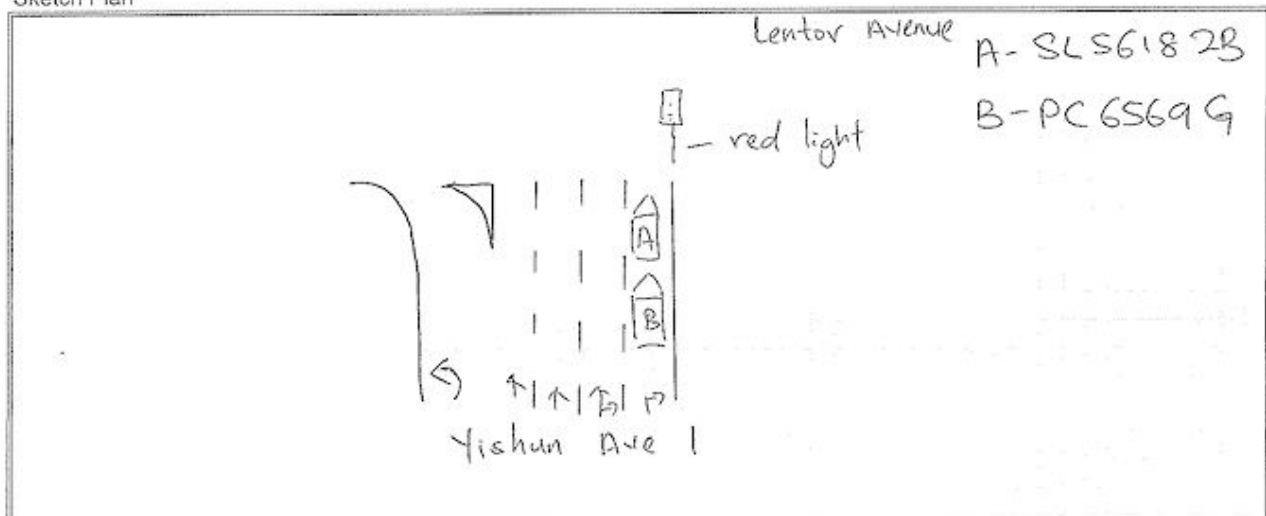 Sketch Plan
Lentor Avenue
A- SLS6182B
B-PC6569G
- red light
A
B
Yishun Ave 1